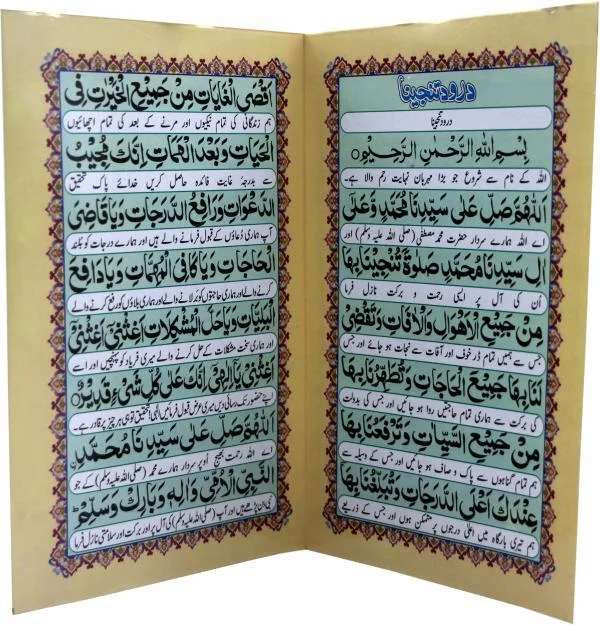 درود تنجینا
درود تنجینا
بِسْمِ اللهِ الرَّحْمٰنِ الرَّحِيْمِ
اللہ کے نام سے شروع جو بڑا مہربان نہایت رحم والا ہے۔
اَللّٰهُمَّ صَلِّ عَلٰى سَيِّدِنَا مُحَمَّدٍ وَّعَلٰى
اے اللہ ہمارے سردار حضرت محمد مصطفیٰ (صلی اللہ علیہ وسلم) اور
اٰلِ سَيِّدِنَا مُحَمَّدٍ صَلٰوةً تُنْجِيْنَا بِهَا
اُن کی آل پر ایسی رحمت و برکت نازل فرما
مِنْ جَمِيْعِ الْاَهْوَالِ وَالْاٰفَاتِ وَتَقْضِىْ
جس سے ہمیں تمام ڈر خوف اور آفات سے نجات ہو جائے اور جس
لَنَا بِهَا جَمِيْعَ الْحَاجَاتِ وَتُطَهِّرُنَا بِهَا
کی برکت سے ہماری تمام حاجتیں روا ہو جائیں اور جس کی بدولت
مِنْ جَمِيْعِ السَّيِّاٰتِ وَتَرْفَعُنَا بِهَا
ہم تمام گناہوں سے پاک و صاف ہو جائیں اور جس کے وسیلہ سے
عِنْدَكَ اَعْلَى الدَّرَجَاتِ وَتُبَلِّغُنَا بِهَا
ہم تیری بارگاہ میں اعلیٰ درجوں پر متمکن ہوں اور جس کے ذریعے
اَقْصَى الْغَايَاتِ مِنْ جَمِيْعِ الْخَيْرَاتِ فِى
ہم زندگانی کی تمام نیکیوں اور مرنے کے بعد کی تمام اچھائیوں
الْحَيَاتِ وَبَعْدَ الْمَمَاتِ اِنَّكَ مُجِيْبُ
سے بدرجہٴ غایت فائدہ حاصل کریں خدائے پاک تحقیق
الدَّعْوَاتِ وَرَافِعُ الدَّرَجَاتِ وَيَا قَاضِىَ
آپ ہماری دُعاؤں کے قبول فرمانے والے ہیں اور ہمارے درجات کو بلند
الْحَاجَاتِ وَيَا كَافِىَ الْمُهِمَّاتِ وَيَا دَافِعَ
کرنے والے اور ہماری حاجتوں کو بر لانے والے اور ہماری بلاؤں کو رفع کرنے والے
الْبَلِيَّاتِ وَيَا حَلَّ الْمُشْكِلَاتِ اَغِثْنِىْ اَغِثْنِىْ
اور ہماری سخت مشکلات کے حل کرنے والے میری فریاد کو پہنچیں اور اسے
اَغِثْنِىْ يَا اِلٰهِىْ اِنَّكَ عَلٰى كُلِّ شَىْءٍ قَدِيْرٌ
اپنے حضور تک رسائی دیں میری عرض قبول فرمائیں الٰہی تحقیق تو ہی ہر چیز پر قادر ہے۔
اَللّٰهُمَّ صَلِّ عَلٰى سَيِّدِنَا مُحَمَّدٍ
اے اللہ رحمت بھیج اُوپر سردار ہمارے محمد (صلی اللہ علیہ وسلم) کے جو
النَّبِىِّ الْاُمِّىِّ وَاٰلِهٖ وَبَارِكْ وَسَلِّمْ
نبی اَن پڑھے ہیں اور آپ (صلی اللہ علیہ وسلم) کی آل پر اور برکت اور سلامتی نازل فرما